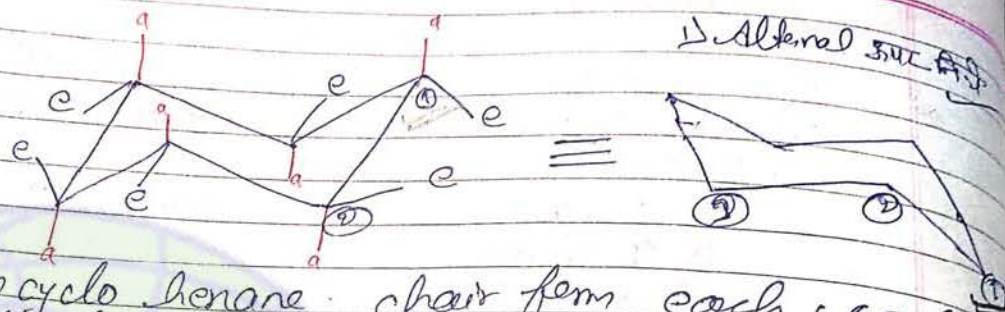 a a
1) Alternal ऊपर नीचे
e a e ① e
e e a ② e
a a
③ ② ①
cyclo henane chair form each